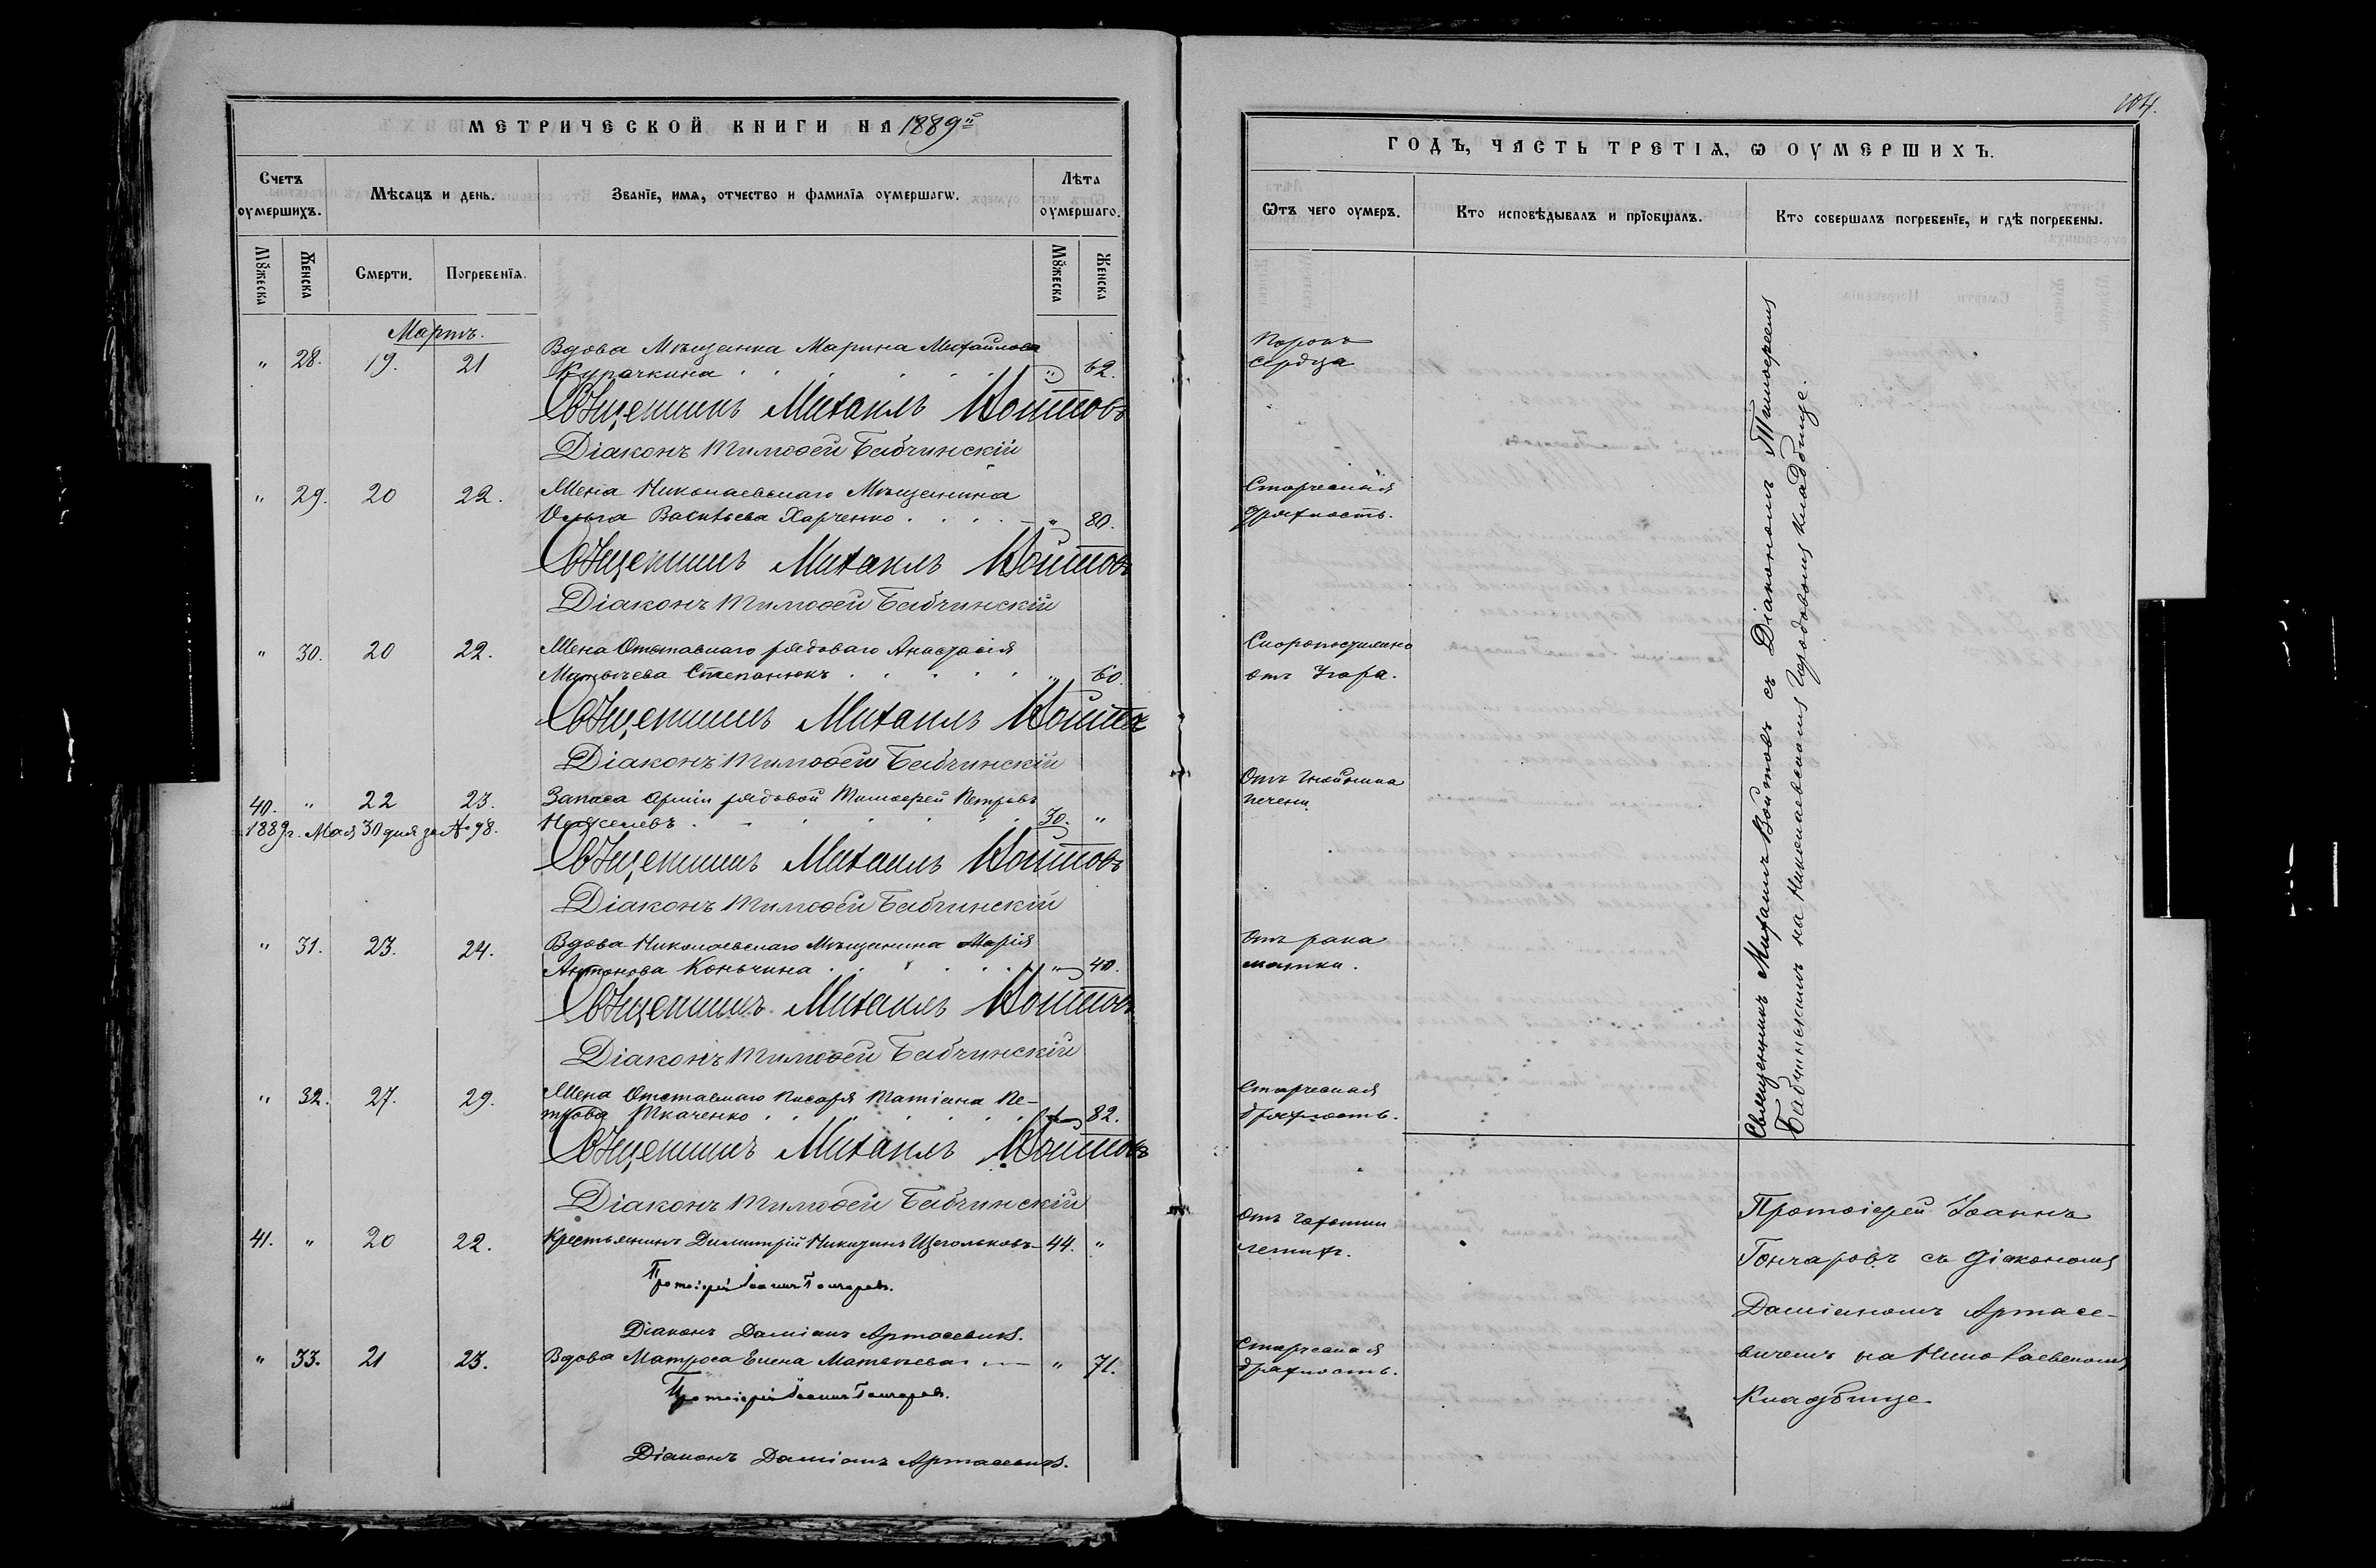 МЕТРИЧЕСКОЙ КНИГИ НА 1889й
Счетъ оумершихъ.
Мѣсяцъ и день.
Званїе, имѧ, отчество и фамилїѧ оумершагѡ.
Лѣта оумершаго.
Мꙋжеска
Женска
Смерти.
Погребенїѧ.
Мꙋжеска
Женска
Мартъ.
" 28. 19. 21 Вдова Мѣщанка Марина Михайлова
Курочкина " 62.
Священникъ Михаилъ Войтовъ
Діаконъ Тимоѳей Бабчинскій
" 29. 20 22. Жена Николаевскаго Мѣщанина
Ольга Васильева Харченко " 80.
Священникъ Михаилъ Войтовъ
Діаконъ Тимоѳей Бабчинскій
" 30. 20 22. Жена Отставнаго рядоваго Анастасія
Степанюкъ " 60.
Священникъ Михаилъ Войтовъ
Діаконъ Тимоѳей Бабчинскій
40. " 22 23. Запаса Арміи рядовой Тимоѳей Петровъ
30. "
1889г. Мая 30 дня за № 98.
Священникъ Михаилъ Войтовъ
Діаконъ Тимоѳей Бабчинскій
" 31. 23. 24. Вдова Николаевскаго Мѣщанина Марія
Антонова Конькина " 40.
Священникъ Михаилъ Войтовъ
Діаконъ Тимоѳей Бабчинскій
" 32. 27. 29. Жена Отставнаго Писаря Татіана Пе-
трова Ткаченко " 82.
Священникъ Михаилъ Войтовъ
Діаконъ Тимоѳей Бабчинскій
41. " 20 22. Крестьянинъ Димитрій Никитинъ Щегольковъ 44. "
Протоіерей Іоаннъ Гончаровъ.
Діаконъ Даміанъ Артасевичъ.
" 33. 21 23. Вдова Матроса Елена Матвѣева " 71.
Протоіерей Іоаннъ Гончаровъ.
Діаконъ Даміанъ Артасевичъ.
104.
ГОДЪ, ЧАСТЬ ТРЕТІѦ, Ѡ ОУМЕРШИХЪ.
Ѿтъ чего оумеръ.
Кто исповѣдывалъ и прїобщалъ.
Кто совершалъ погребенїе, и гдѣ погребены.
Порокъ
сердца
Старческая
дряхлость.
Скоропостижно
отъ Угара.
Отъ
печени
Отъ рака
матки.
Старческая
дряхлость.
Священникъ Михаилъ Войтовъ съ Діакономъ Тимоѳеемъ
Бабчинскимъ на Николаевскомъ Городовомъ кладбище.
Отъ чахотки
легкихъ.
Старческая
дряхлость.
Протоіерей Іоаннъ
Гончаровъ съ Діакономъ
Даміаномъ Артасе-
вичемъ на Николаевскомъ
Кладбище